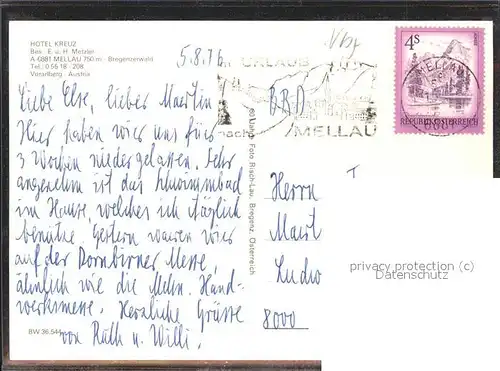 HOTEL KREUZ
Bes. E. u. H. Metzler
A-6881 MELLAU 750 m - Bregenzerwald
Tel.: 0 55 18 - 208
Vorarlberg - Austria
5.8.76
Liebe Else, lieber Martin
Hier haben wir uns für
3 Wochen niedergelassen. Sehr
angenehm ist das Schwimmbad
im Hause, welches ich täglich
benütze. Gestern waren wir
auf der Dornbirner Messe,
ähnlich wie die Mchn. Hand-
werksmesse. Herzliche Grüsse
von Ruth u. Willi.
BW 36.544
Foto Risch-Lau, Bregenz, Österreich
URLAUB
nach
MELLAU
4 S
REPUBLIK ÖSTERREICH
MELLAU
6881
BRD
Herrn
Mart
Ludw
8000
privacy protection (c)
Datenschutz